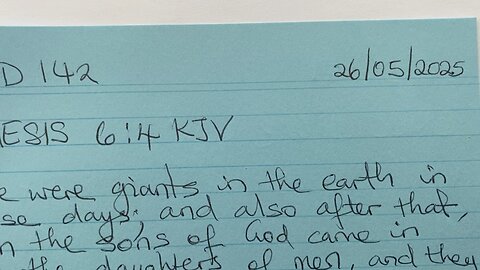 D 142 26/05/2025
ESIS 6:4 KJV
e were giants in the earth in
se days; and also after that,
n the sons of God came in
the daughters of men, and they